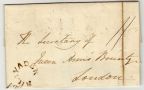 The Secretary of
Queen Anne's Bounty
London